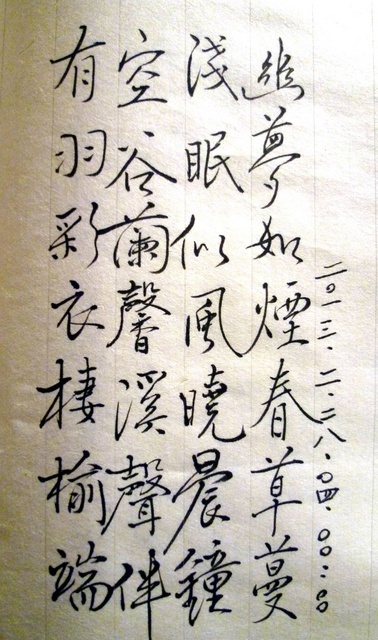 二〇一三.二.二八.〇四.〇〇:〇〇
幽夢如煙春草蔓
淺眠似風曉晨鐘
空谷蘭馨溪聲伴
有羽彩衣棲榆端